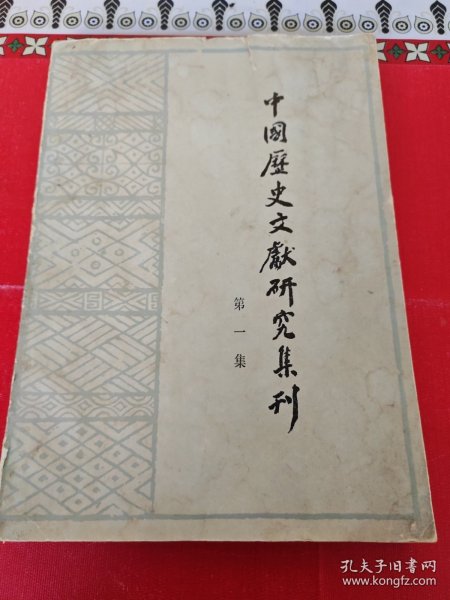 中國歷史文獻研究集刊
第一集
孔夫子旧书网
www.kongfz.com